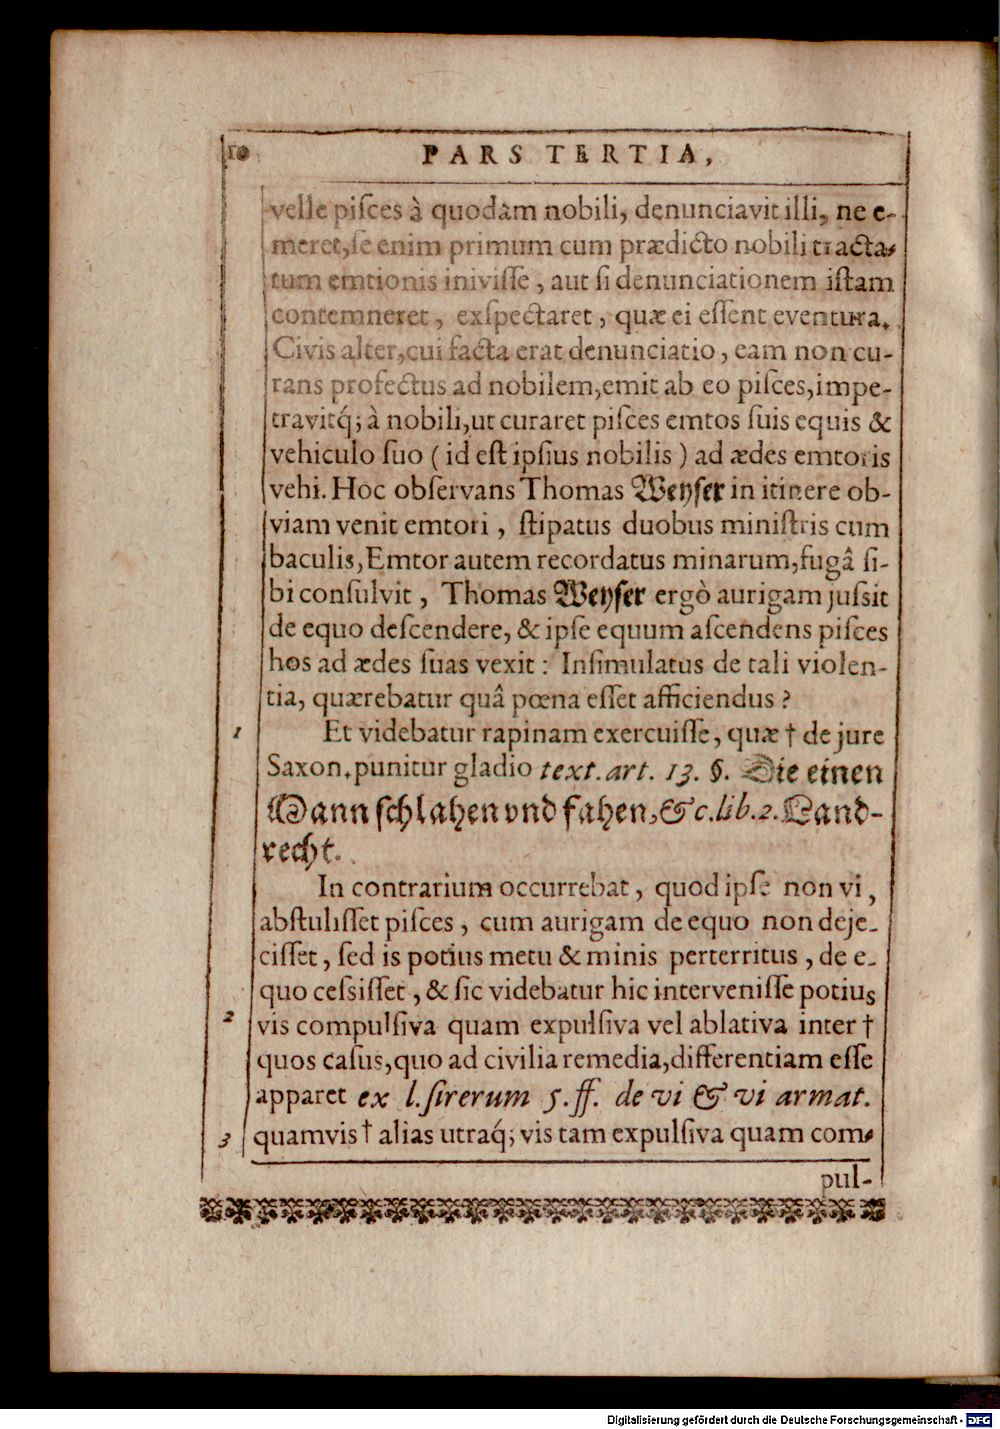 10
PARS TERTIA,
velle piſces à quodam nobili, denunciavit illi, ne e-
meret, ſe enim primum cum prædicto nobili tracta-
tum emtionis iniviſſe, aut ſi denunciationem iſtam
contemneret, exſpectaret, quæ ei eſſent eventura.
Civis alter, cui facta erat denunciatio, eam non cu-
rans profectus ad nobilem, emit ab eo piſces, impe-
travitq́; à nobili, ut curaret piſces emtos ſuis equis &
vehiculo ſuo (id eſt ipſius nobilis) ad ædes emtoris
vehi. Hoc obſervans Thomas Weyſer in itinere ob-
viam venit emtori, ſtipatus duobus miniſtris cum
baculis, Emtor autem recordatus minarum, fugâ ſi-
bi conſulvit, Thomas Weyſer ergò aurigam juſsit
de equo deſcendere, & ipſe equum aſcendens piſces
hos ad ædes ſuas vexit: Inſimulatus de tali violen-
tia, quærebatur quâ pœna eſſet afficiendus?
1 Et videbatur rapinam exercuiſſe, quæ † de jure
Saxon. punitur gladio text. art. 13. §. Die einen
Mann ſchlahen vnd fahen, &c. lib. 2. Land-
recht.
In contrarium occurrebat, quod ipſe non vi,
abſtuliſſet piſces, cum aurigam de equo non deje-
ciſſet, ſed is potius metu & minis perterritus, de e-
quo ceſsiſſet, & ſic videbatur hic interveniſſe potius
2 vis compulſiva quam expulſiva vel ablativa inter †
quos caſus, quo ad civilia remedia, differentiam eſſe
apparet ex l. ſi rerum 5. ff. de vi & vi armat.
3 quamvis † alias utraq́; vis tam expulſiva quam com-
pul-
Digitalisierung gefördert durch die Deutsche Forschungsgemeinschaft - DFG